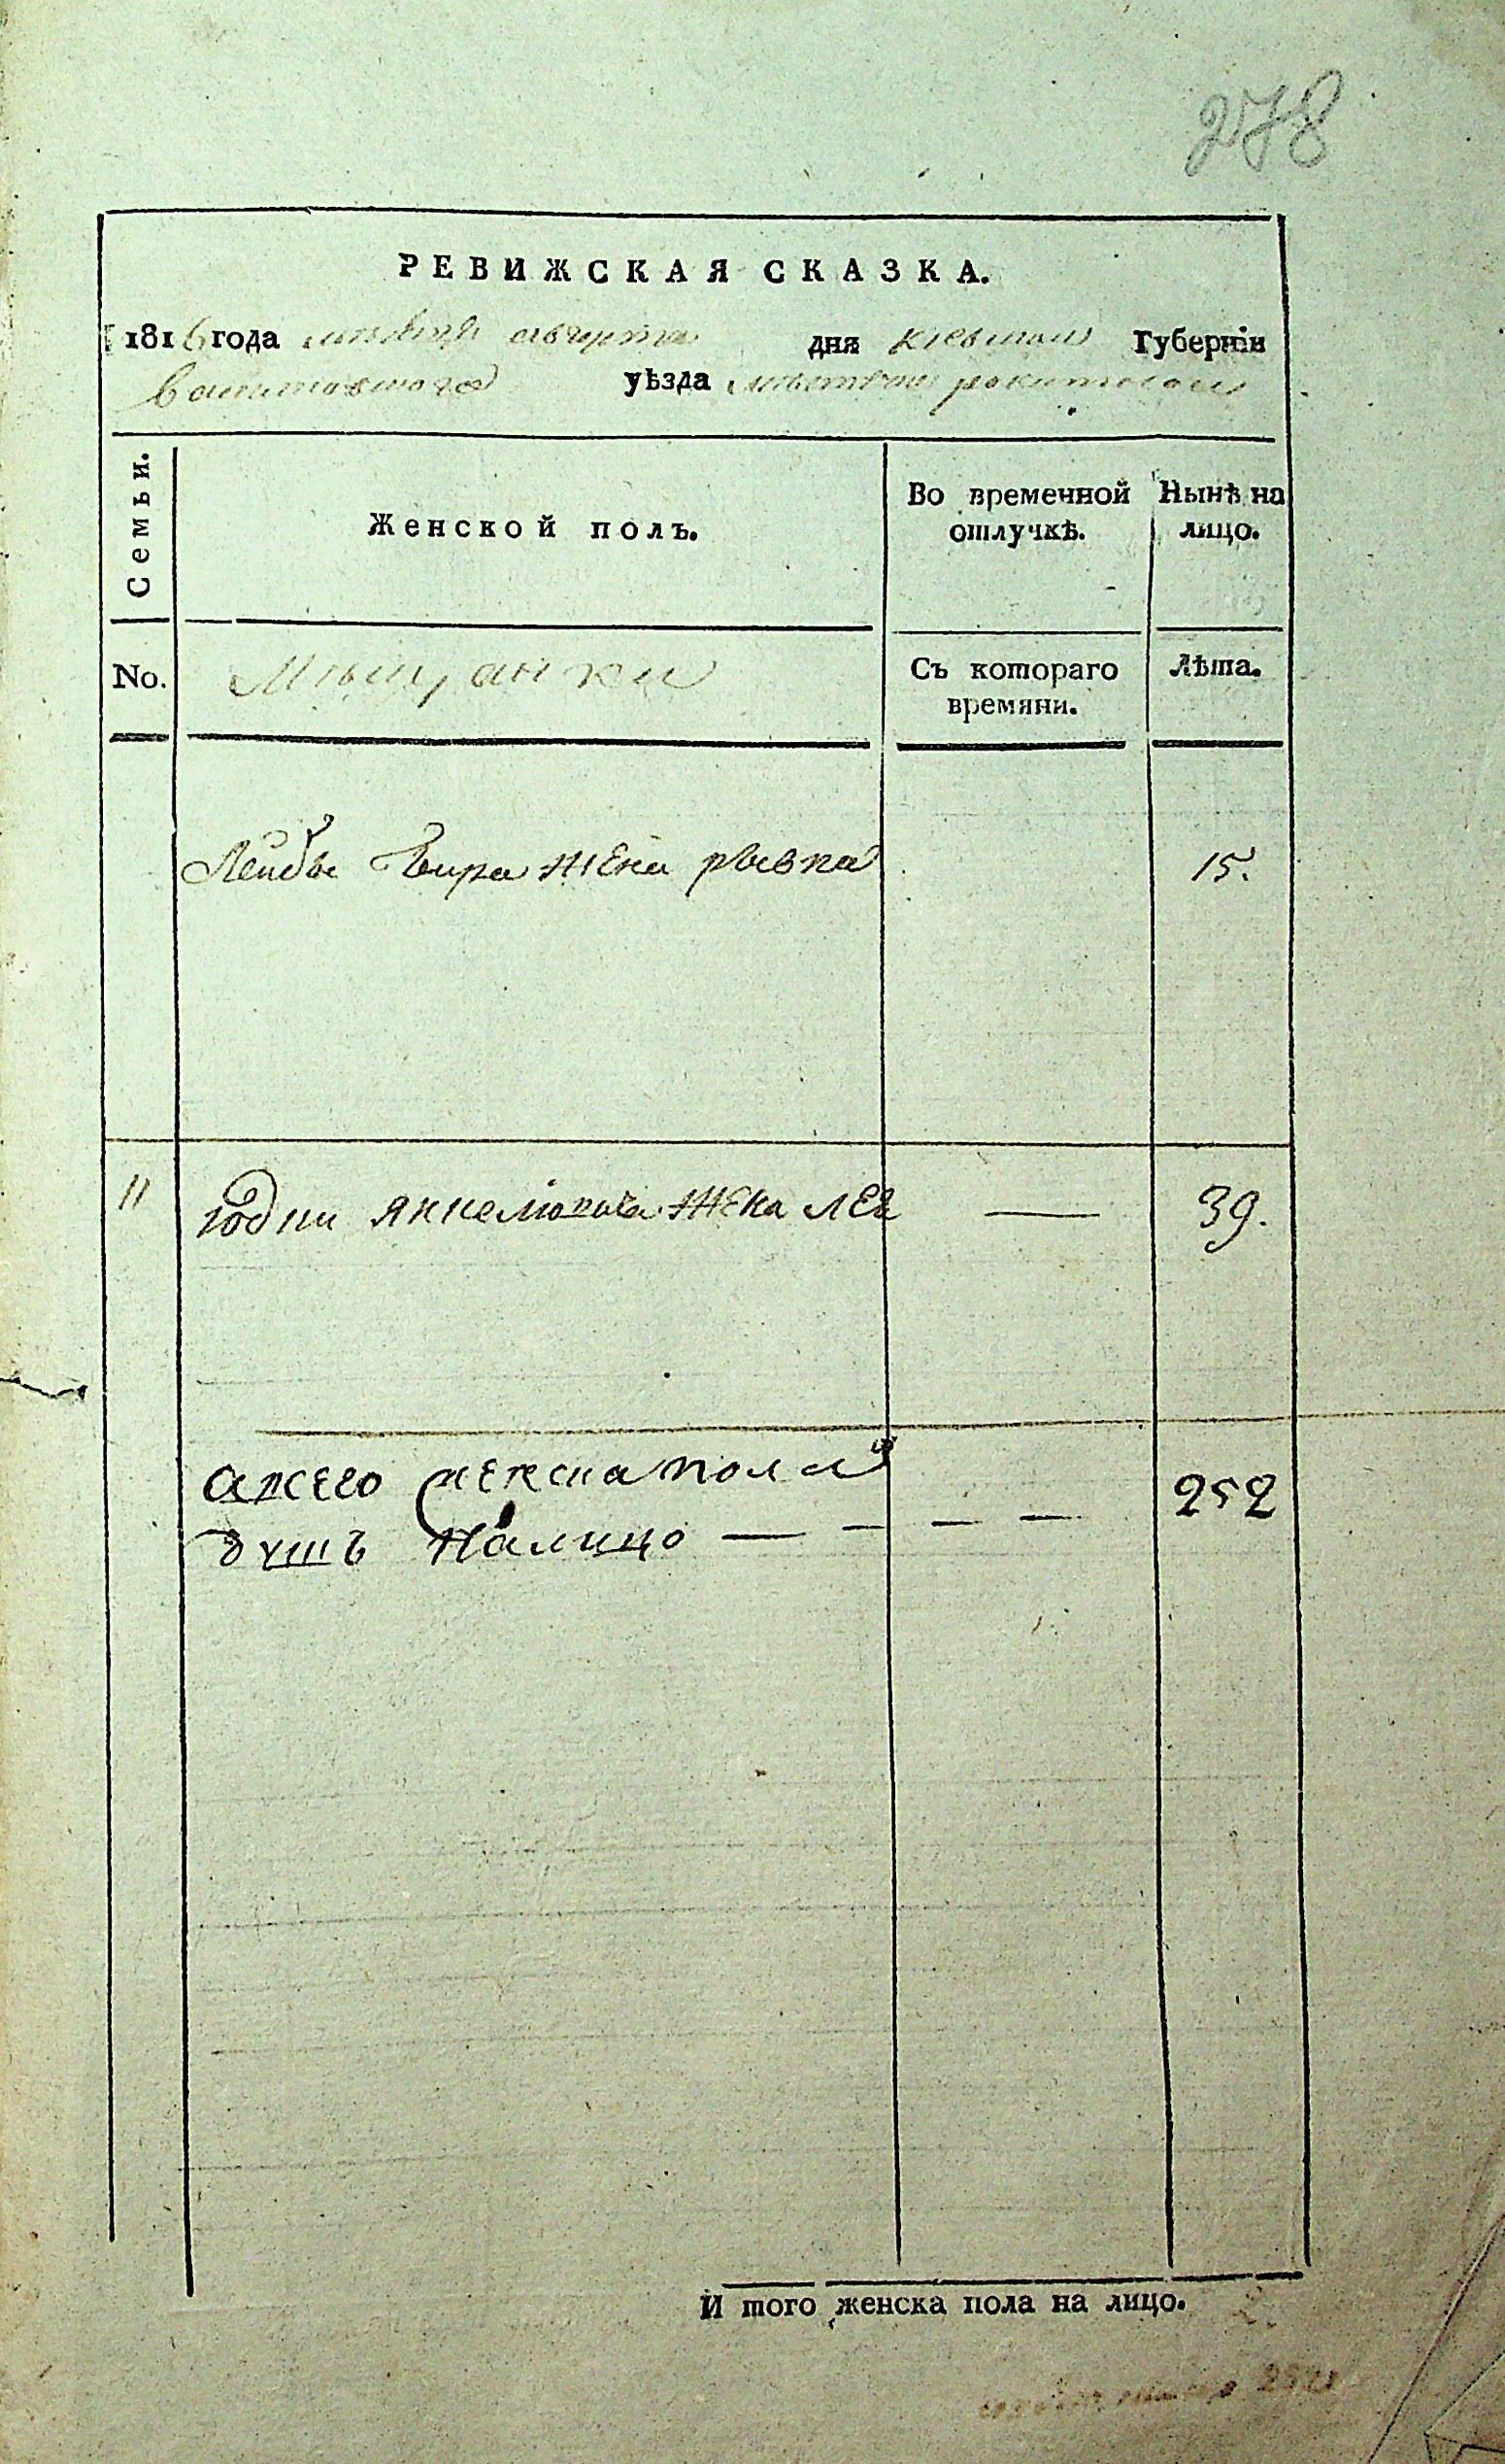 278
РЕВИЖСКАЯ СКАЗКА.
1816 года месяца августа дня киевской Губерніи
уѣзда
Семьи.
Женской полъ.
Во временной отлучкѣ.
Нынѣ на лицо.
No.
Мещанки
Съ котораго времяни.
Лѣта.
Лейбы жена рывка 15.
11 юдки жена лея — 39.
а всего женска пола
душъ налицо — — — — 252
И того женска пола на лицо. 2.